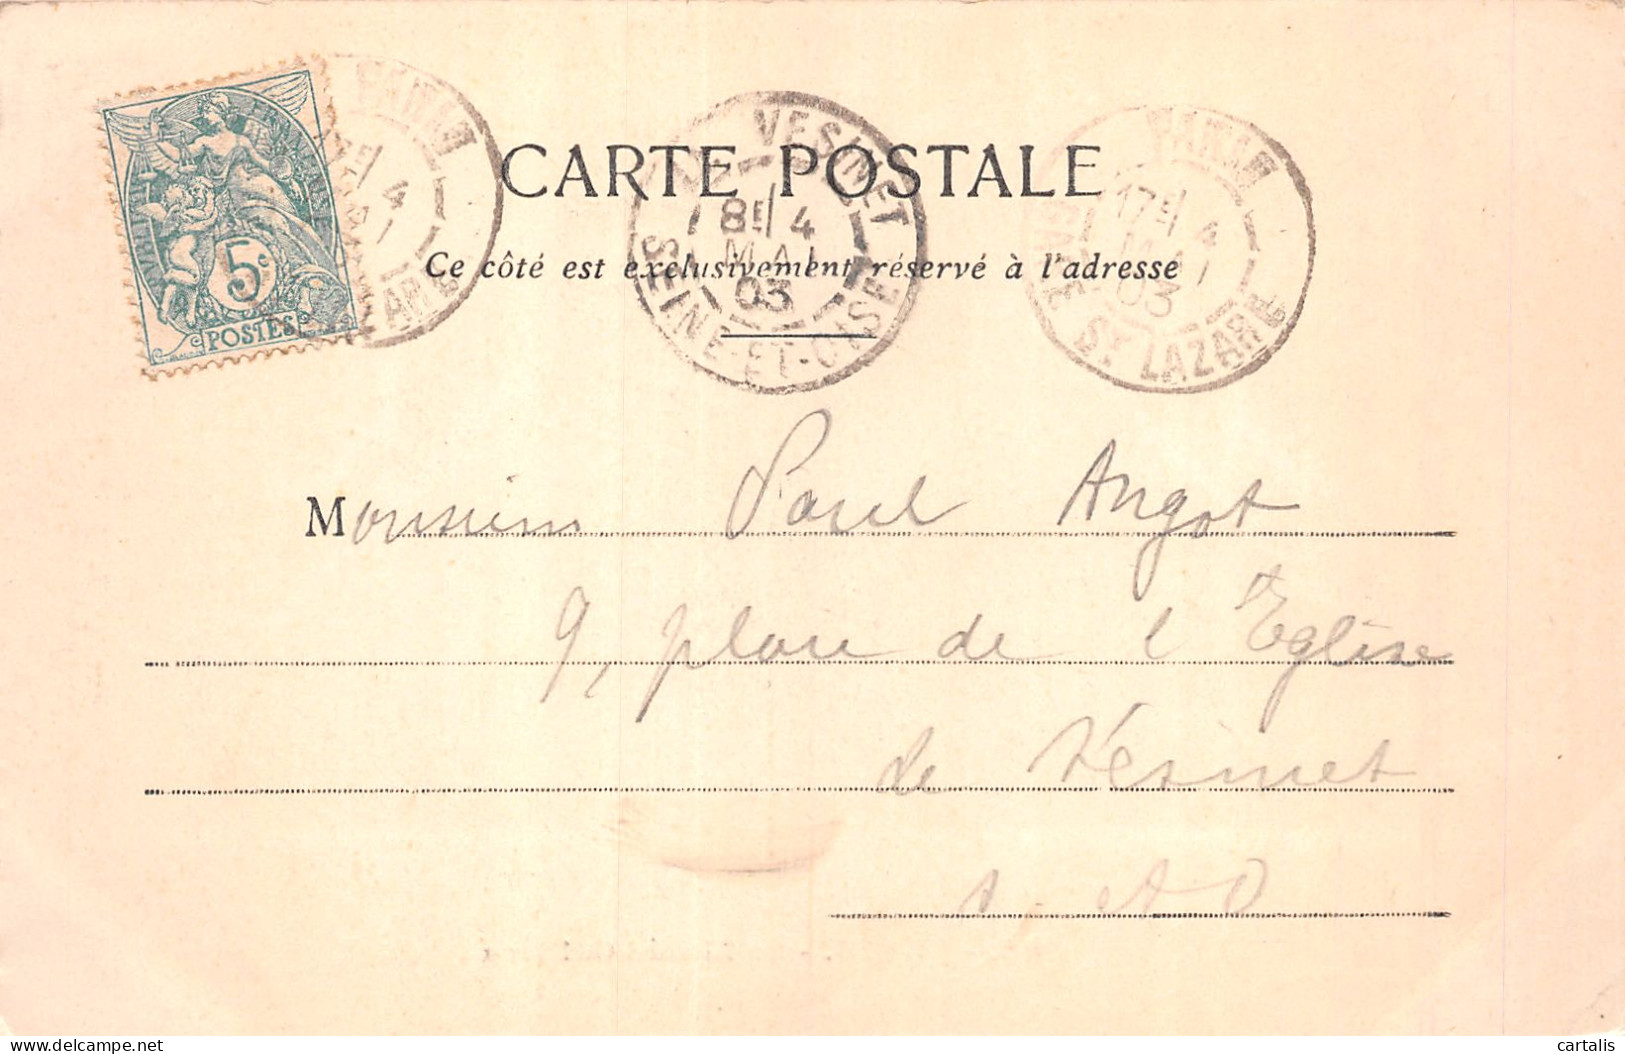 RÉPUBLIQUE FRANÇAISE
5c
POSTES
PARIS
GARE ST LAZARE
4
LE VESINET
8E 4
MAI
03
SEINE-ET-OISE
PARIS
17E 4
MAI
03
GARE ST LAZARE
CARTE POSTALE
Ce côté est exclusivement réservé à l'adresse
Monsieur Paul Angot
9, place de l'Eglise
Le Vésinet
S. et O
cartalis